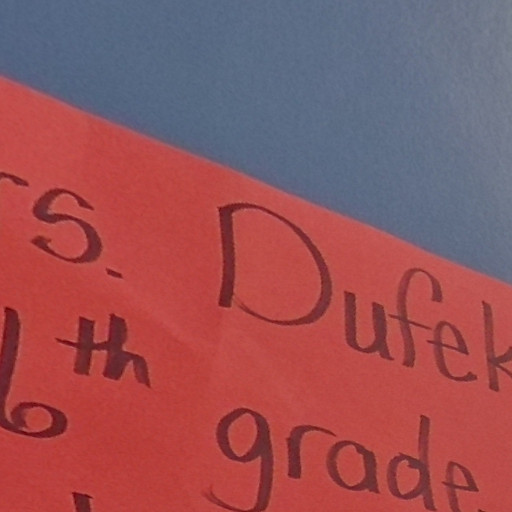 rs. Dufek
6th grade